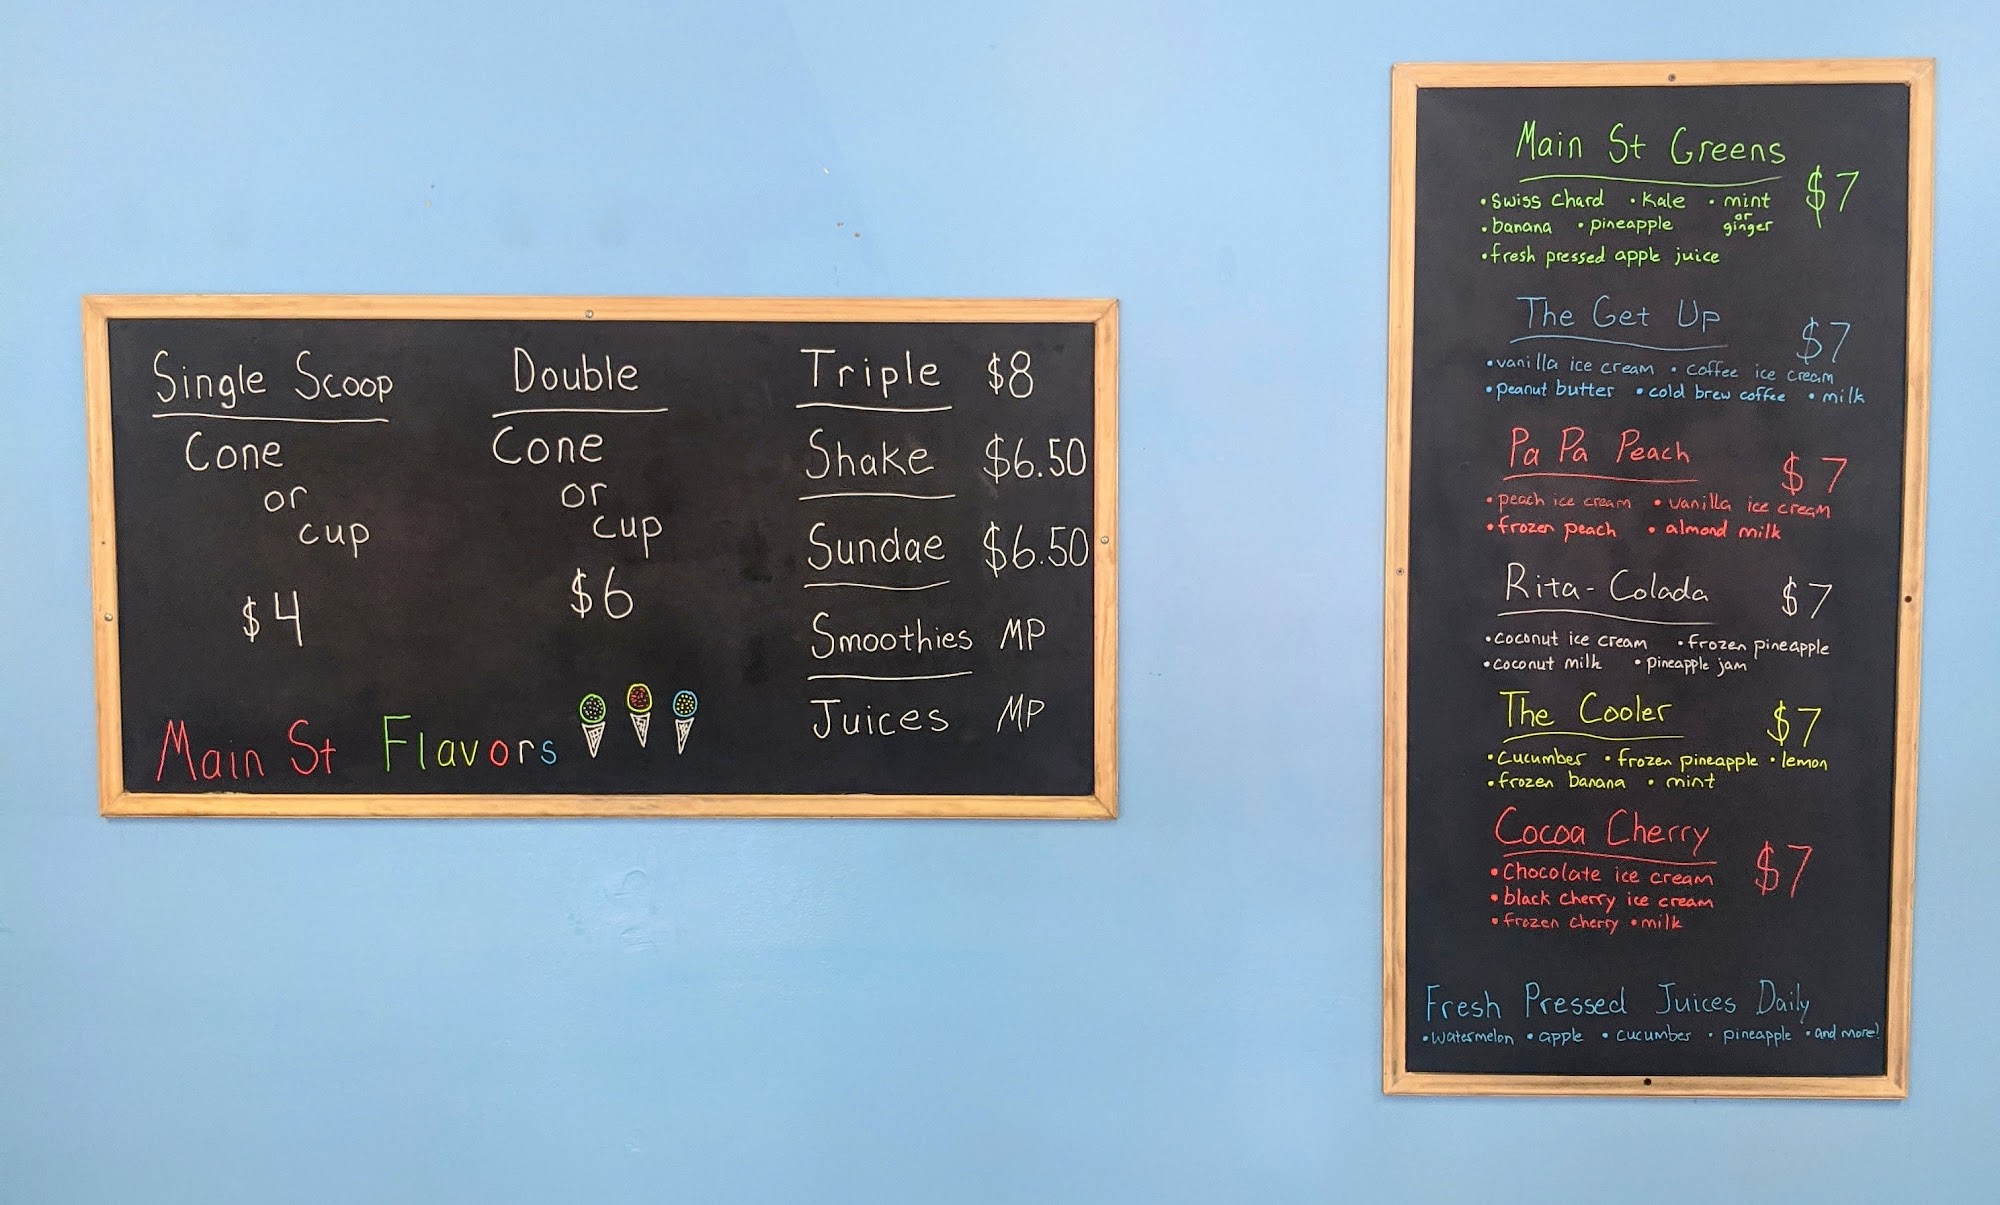 Single Scoop
Cone
or
cup
$4
Double
Cone
or
cup
$6
Triple $8
Shake $6.50
Sundae $6.50
Smoothies MP
Juices MP
Main St Flavors
Main St Greens
$7
•Swiss Chard •Kale •mint
or
•banana •pineapple ginger
•fresh pressed apple juice
The Get Up
$7
•vanilla ice cream •coffee ice cream
•peanut butter •cold brew coffee •milk
Pa Pa Peach
$7
•peach ice cream •vanilla ice cream
•frozen peach •almond milk
Rita-Colada $7
•coconut ice cream •frozen pineapple
•coconut milk •pineapple jam
The Cooler $7
•cucumber •frozen pineapple •lemon
•frozen banana •mint
Cocoa Cherry
$7
•Chocolate ice cream
•black cherry ice cream
•frozen cherry •milk
Fresh Pressed Juices Daily
•watermelon •apple •cucumber •pineapple •and more!